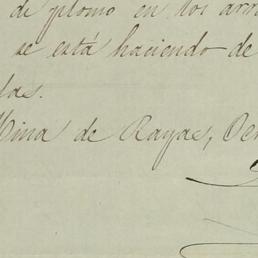 de plomo en los
se está haciendo de
las.
Mina de Rayas,